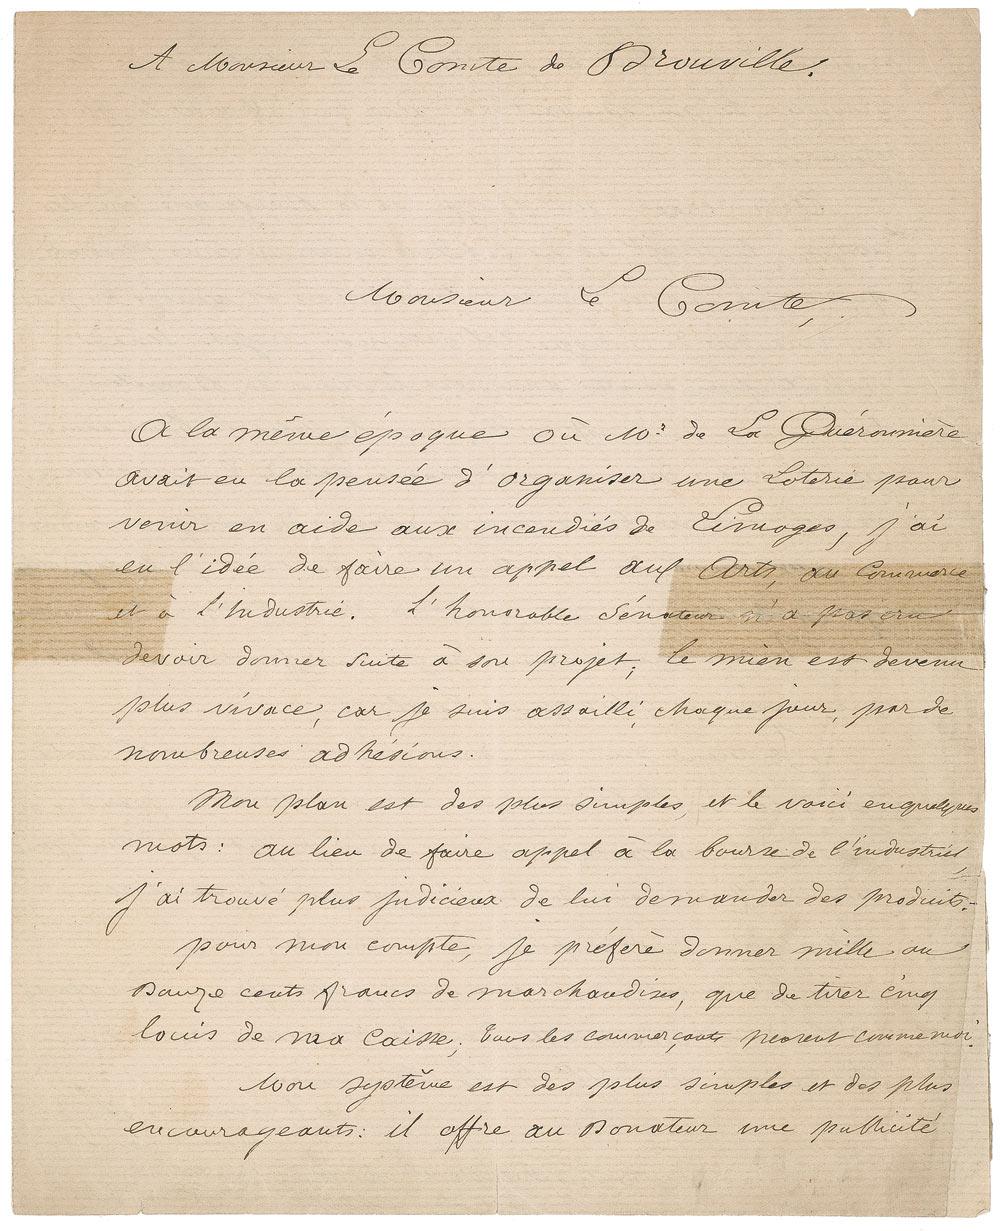 A Monsieur Le Comte de Brouville.
Monsieur Le Comte,
A la même époque où Mr de La Guéronnière
avait eu la pensée d'organiser une Loterie pour
venir en aide aux incendiés de Limoges, j'ai
eu l'idée de faire un appel aux Arts, au Commerce
et à l'Industrie. L'honorable Sénateur n'a pas cru
devoir donner suite à son projet; le mien est devenu
plus vivace, car je suis assailli, chaque jour, par de
nombreuses adhésions.
Mon plan est des plus simples, et le voici en quelques
mots: au lieu de faire appel à la bourse de l'industriel,
j'ai trouvé plus judicieux de lui demander des produits.-
pour mon compte, je préfère donner mille ou
Douze cents francs de marchandises, que de tirer cinq
louis de ma Caisse; tous les commerçants pensent comme moi.
Mon système est des plus simples et des plus
encourageants: il offre au Donateur une publicité